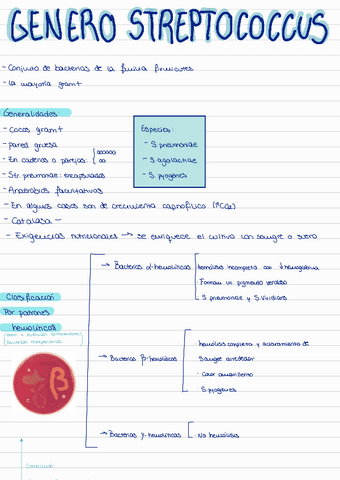 GENERO STREPTOCOCCUS
- Conjunto de bacterias de la familia firmicutes
- La mayoria gram+
Generalidades:
- Cocos gram+
- pared gruesa
- En cadenas o parejas:
- Str. pneumoniae: encapsuladas
- Anaerobios facultativos
- En algunos casos son de crecimiento capnofilico (↑CO2)
- Catalasa -
- Exigencias nutricionales → se enriquece el cultivo con sangre o suero
Especies:
- S. pneumoniae
- S. agalactiae
- S. pyogenes
Clasificación
Por patrones
hemolíticos
→ Bacterias α-hemolíticas
hemolisis incompleta con ↓ hemoglobina
Forman un pigmento verdoso
S. pneumoniae y S. Viridans
→ Bacterias β-hemolíticas
- hemolisis completa y aclaramiento de
Sangre alrededor
- Color amarillento
- S. pyogenes
→ Bacterias γ-hemolíticas
- No hemolisis
β